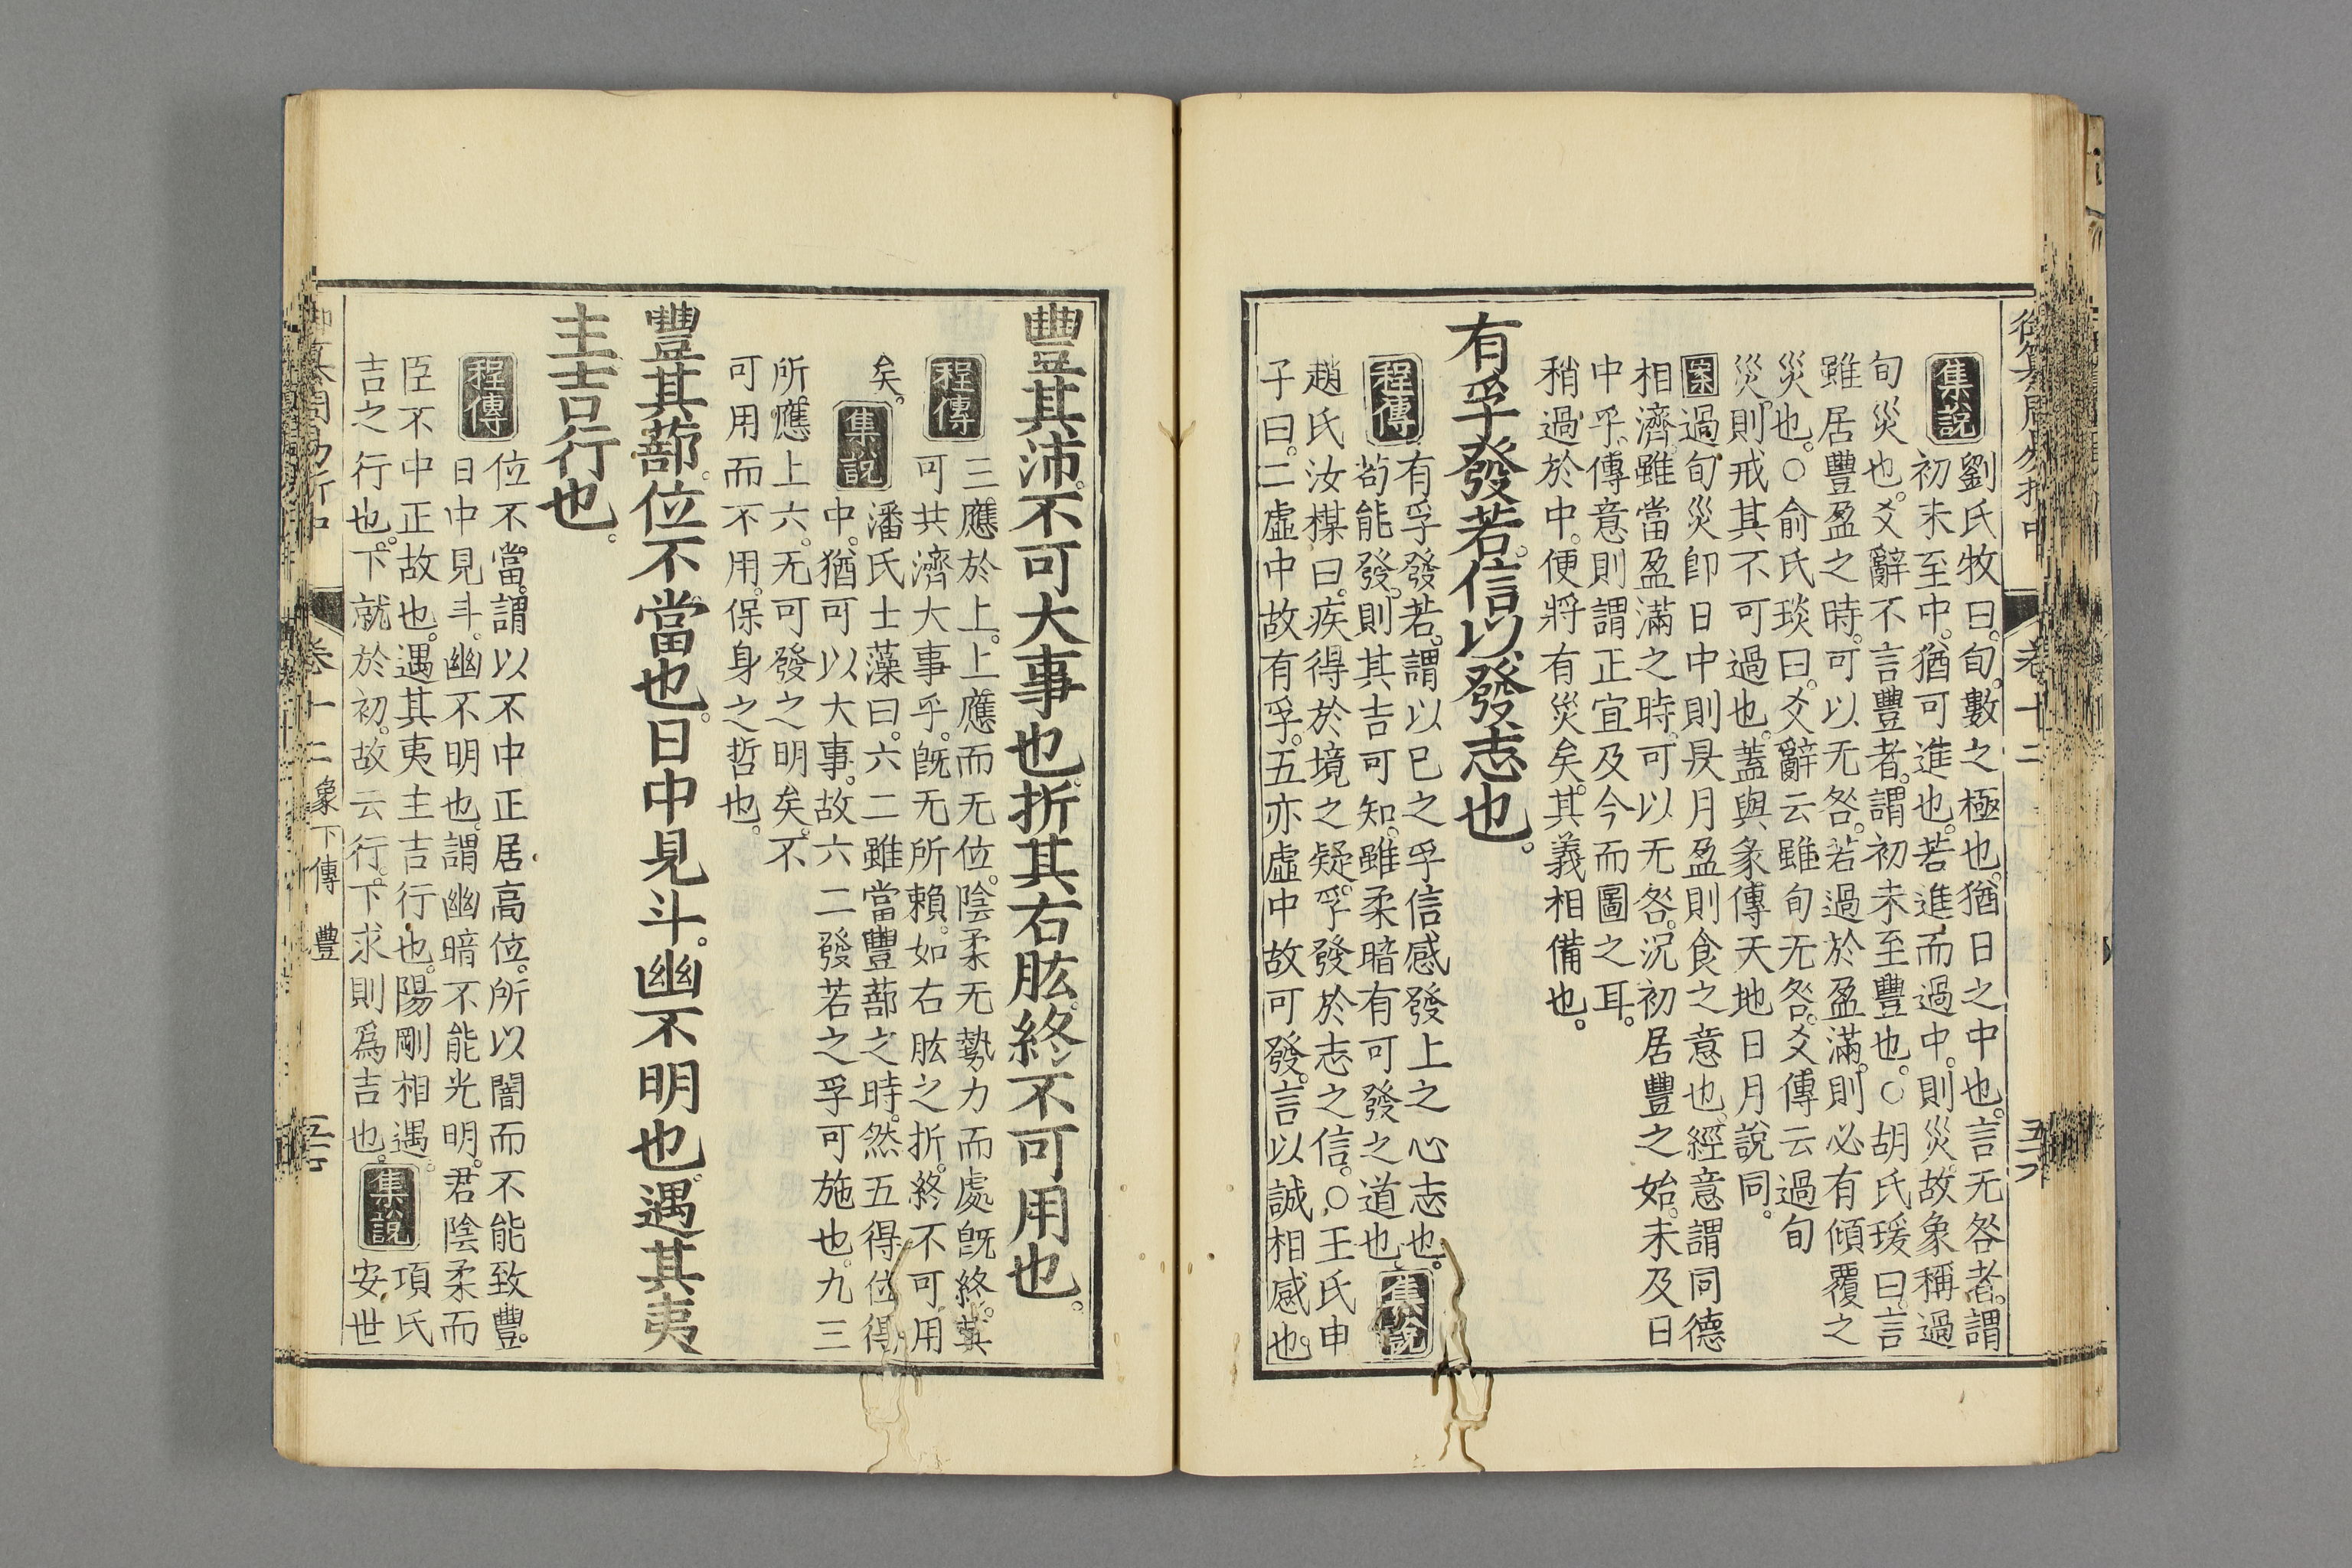 集說
劉氏牧曰。旬。數之極也。猶日之中也。言无咎者。謂
初未至中。猶可進也。若進而過中。則災。故象稱過
旬災也。爻辭不言豐者。謂初未至豐也。○胡氏瑗曰。言
雖居豐盈之時。可以无咎。若過於盈滿。則必有傾覆之
災也。○俞氏琰曰。爻辭云雖旬无咎。爻傳云過旬
災。則戒其不可過也。蓋與彖傳天地日月說同。
案過旬災卽日中則昃月盈則食之意也。經意謂同德
相濟。雖當盈滿之時。可以无咎。況初居豐之始。未及日
中乎。傳意則謂正宜及今而圖之耳。
稍過於中。便將有災矣。其義相備也。
有孚發若。信以發志也。
程傳
有孚發若。謂以己之孚信感發上之心志也。
苟能發。則其吉可知。雖柔暗有可發之道也。集說
趙氏汝楳曰。疾得於境之疑。孚發於志之信。○王氏申
子曰。二虛中故有孚。五亦虛中故可發。言以誠相感也。
卷十二
豐其沛。不可大事也。折其右肱。終不可用也。
程傳
三應於上。上應而无位。陰柔无勢力而處旣終。其
可共濟大事乎。旣无所賴。如右肱之折。終不可用
矣。集說
潘氏士藻曰。六二雖當豐蔀之時。然五得位得
中。猶可以大事。故六二發若之孚可施也。九三
所應上六。无可發之明矣。不
可用而不用。保身之哲也。
豐其蔀。位不當也。日中見斗。幽不明也。遇其夷
主。吉行也。
程傳
位不當。謂以不中正居高位。所以闇而不能致豐。
日中見斗。幽不明也。謂幽暗不能光明。君陰柔而
臣不中正故也。遇其夷主吉行也。陽剛相遇。
吉之行也。下就於初。故云行。下求則爲吉也。集說
項氏
安世
卷十二 象下傳 豐